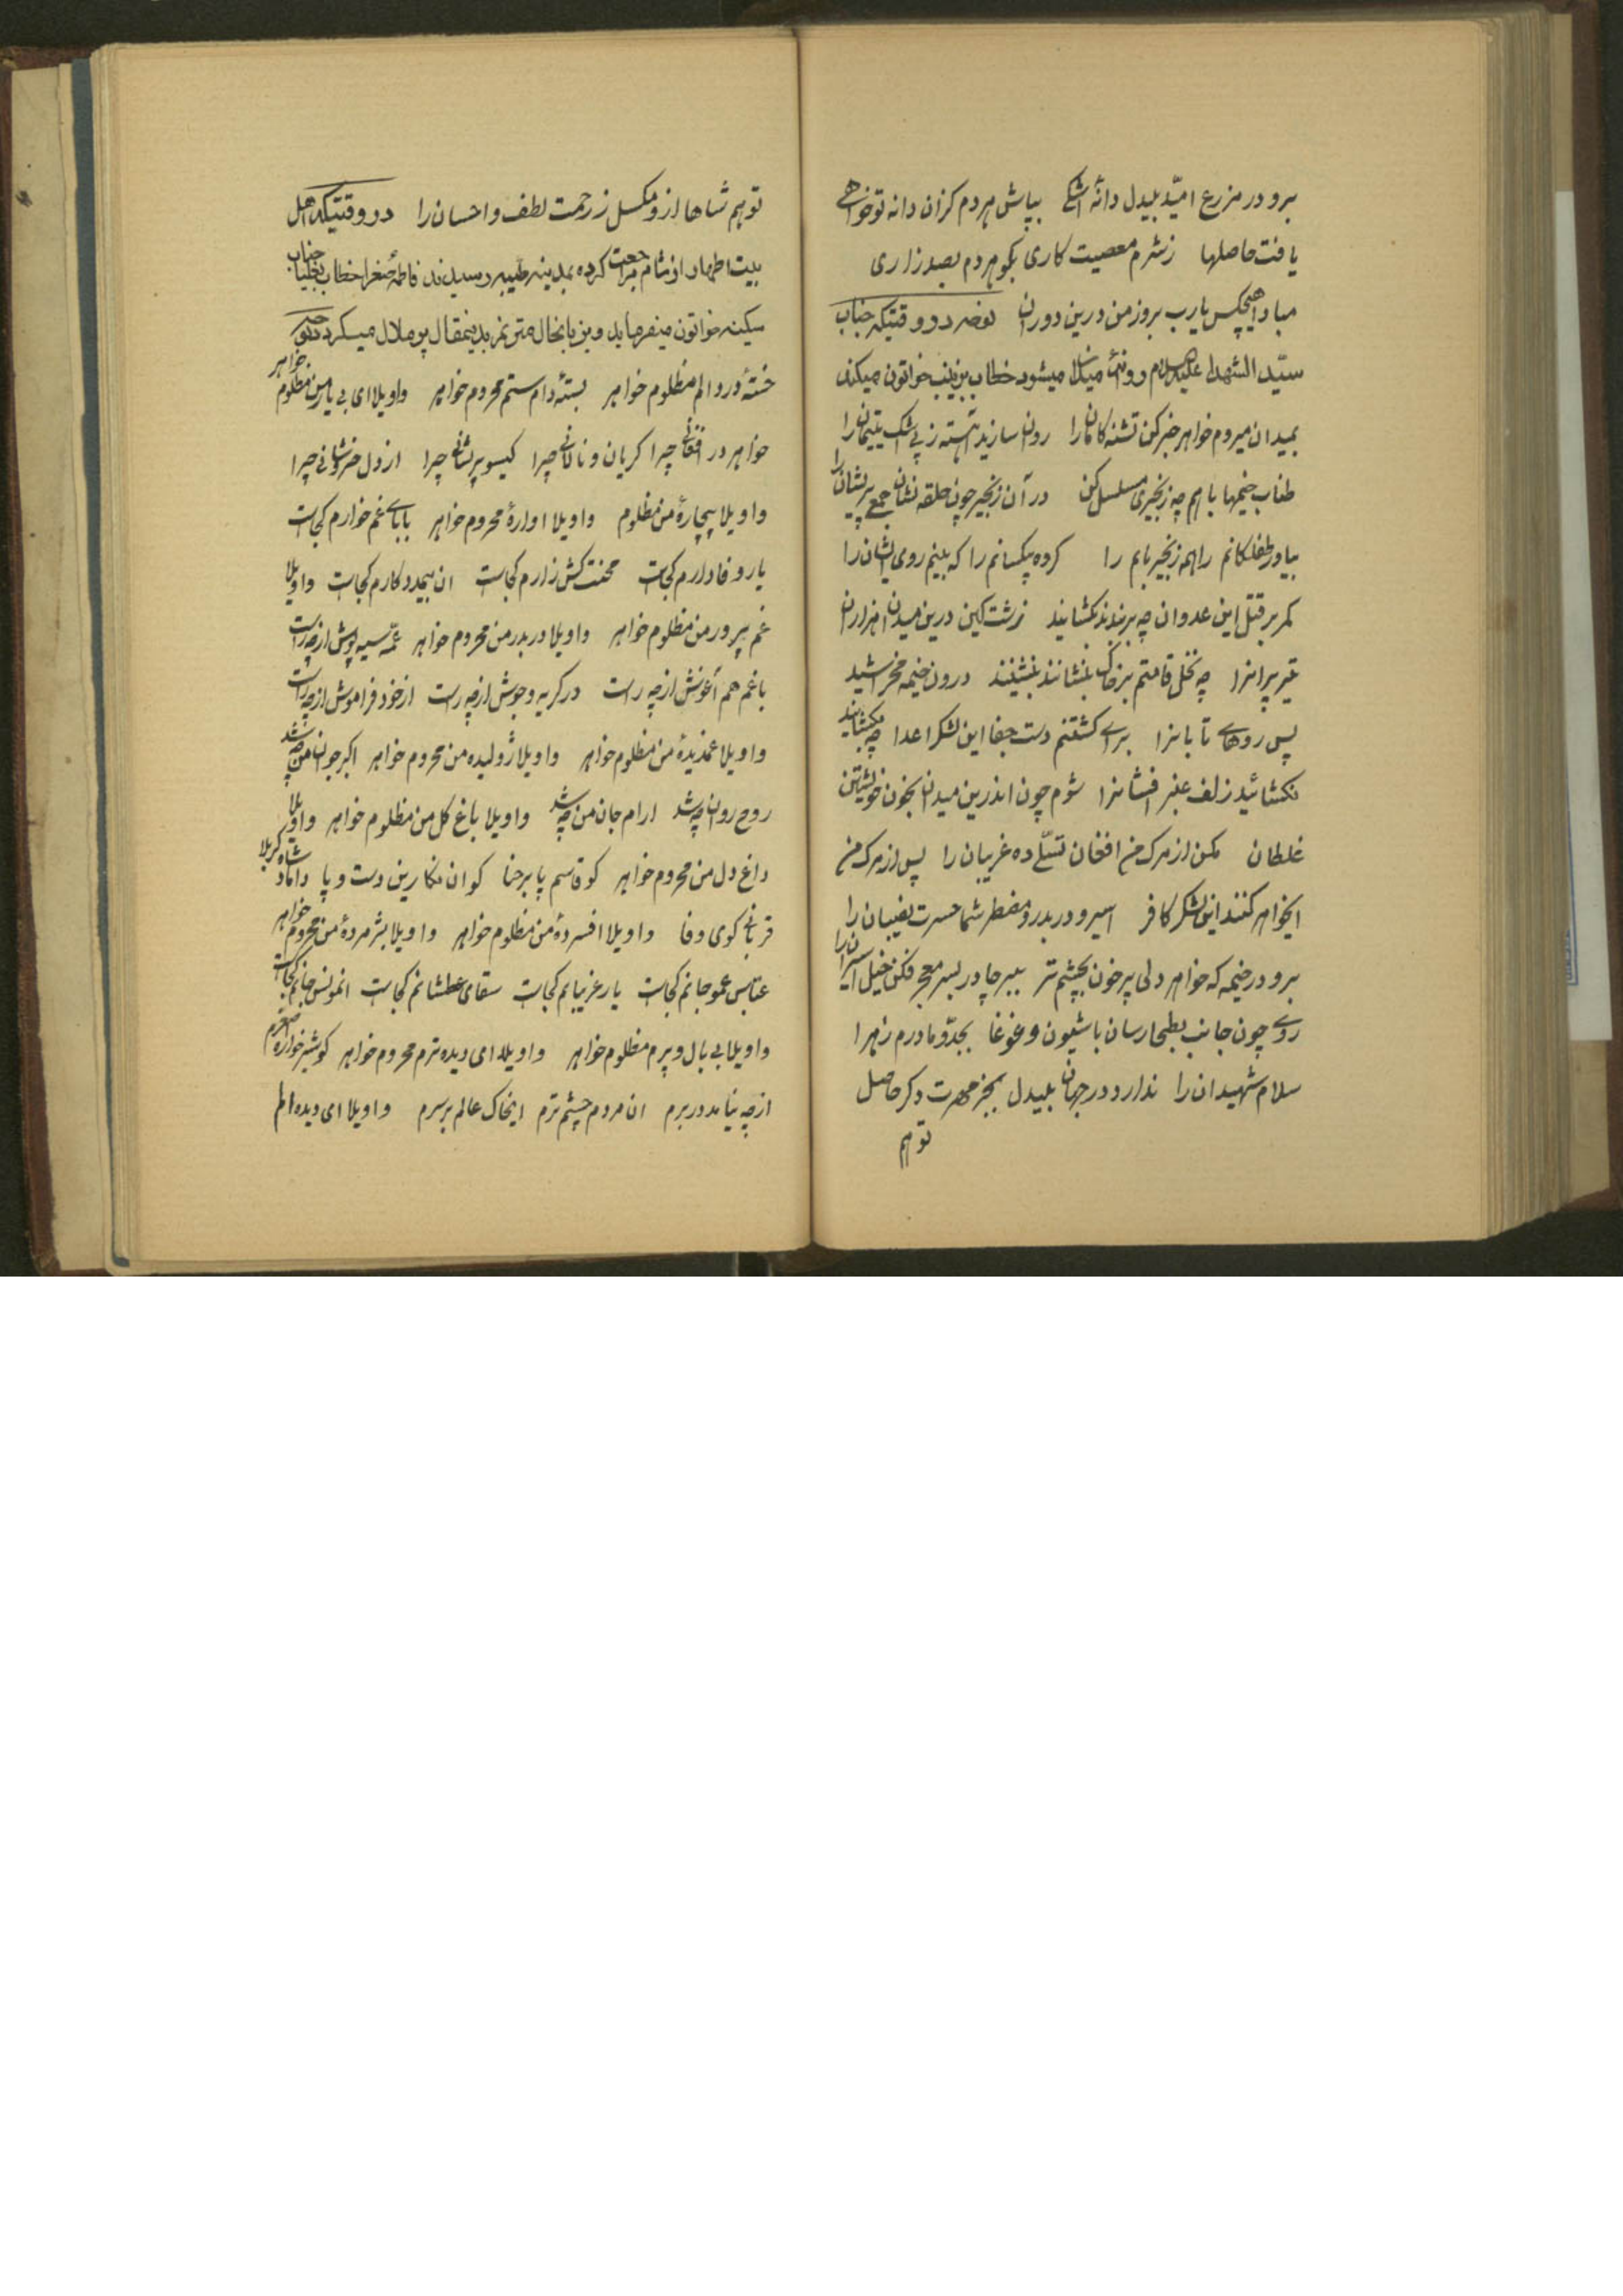 برو در مزرع امیّد بیدل دانهٔ اشکی بپاش هردم کزان دانه تو خواهی
یافت حاصلها ز شرم معصیت کاری بکو هردم بصد زاری
مبادا هیچکس یارب بروز من درین دوران نوحه در وقتیکه جناب
سیّد الشهدا علیه السلام روانهٔ میدان میشود خطاب بزینب خواتون میکند
بمیدان میروم خواهر خبر کن تشنه کامانرا روان سازید آهسته ز پی اشک یتیمانرا
طناب خیمها باهم چه زنجیری مسلسل کن در آن زنجیر چون حلقه نشان جمع پریشانرا
بیاور طفلکانم را همه زنجیر بایم را کروه بیکسانم را که بینم روی ایشان را
کمر بر قتل این عدوان چه بربندند نکشایند ز شست کین درین میدان هزاران
تیر پرانرا چه نخل قامتم بر خاک بنشانند بنشینند درون خیمه مخراشید
پس روهای تابانرا برای کشتنم دست جفا این لشکر اعدا چه بکشایند
نکشائید زلف عنبر افشانرا شوم چون اندرین میدان بخون خویشتن
غلطان مکن از مرک من افغان تسلّی ده غریبان را پس از مرک من
ایخواهر کنند این لشکر کافر اسیر و دربدر و مضطر شما حسرت نصیبان را
برو در خیمه که خواهر دلی پر خون بچشم تر ببر چادر بسر معجر فکن خیل اسیرانرا
روی چون جانب بطحا رسان با شیون و غوغا بجدّ و مادرم زهرا
سلام شهیدان را ندارد در جهان بیدل بجز مهرت دکر حاصل
تو هم
تو هم شاها ازو مکسل ز رحمت لطف و احسان را در وقتیکه اهل
بیت اطهار از شام مراجعت کرده بمدینه طیبه رسیدند فاطمهٔ صغرا خطاب بجناب
سکینه خواتون میفرماید وبن بانحال مترنم بدینمقال پر ملال میکردد
خستهٔ درد و الم مظلوم خواهر بستهٔ دام ستم محروم خواهر واویلا ای بی یار من مظلوم خواهر
خواهر در افغانی چرا کریان و نالانی چرا کیسو پریشانی چرا از دل خروشانی چرا
واویلا بیچارهٔ من مظلوم واویلا اوارهٔ محروم خواهر بابای غم خوارم کجاست
یار وفادارم کجاست محنت کش زارم کجاست ان بیمددکارم کجاست واویلا
غم پرور من مظلوم خواهر واویلا دربدر من محروم خواهر عمّه سیه پوش از چه راست
با غم هم آغوش از چه راست در کریه و جوش از چه راست از خود فراموش از چه راست
واویلا غمدیدهٔ من مظلوم خواهر واویلا ژولیده من محروم خواهر اکبر جوان من چه شد
روح روان چه شد ارام جان من چه شد واویلا باغ کل من مظلوم خواهر واویلا
داغ دل من محروم خواهر کو قاسم پا بر حنا کو ان نکارین دست و پا داماد شاه کربلا
قربانی کوی وفا واویلا افسردهٔ من مظلوم خواهر واویلا پژمردهٔ من محروم خواهر
عبّاس عمو جانم کجاست یار غریبانم کجاست سقای عطشانم کجاست ان مونس جانم کجاست
واویلا بی بال و پرم مظلوم خواهر واویلا ای دیده ترم محروم خواهر کو شیرخواره اصغرم
از چه نیامد در برم ان مردم چشم ترم ایخاک عالم بر سرم واویلا ای دیده الم